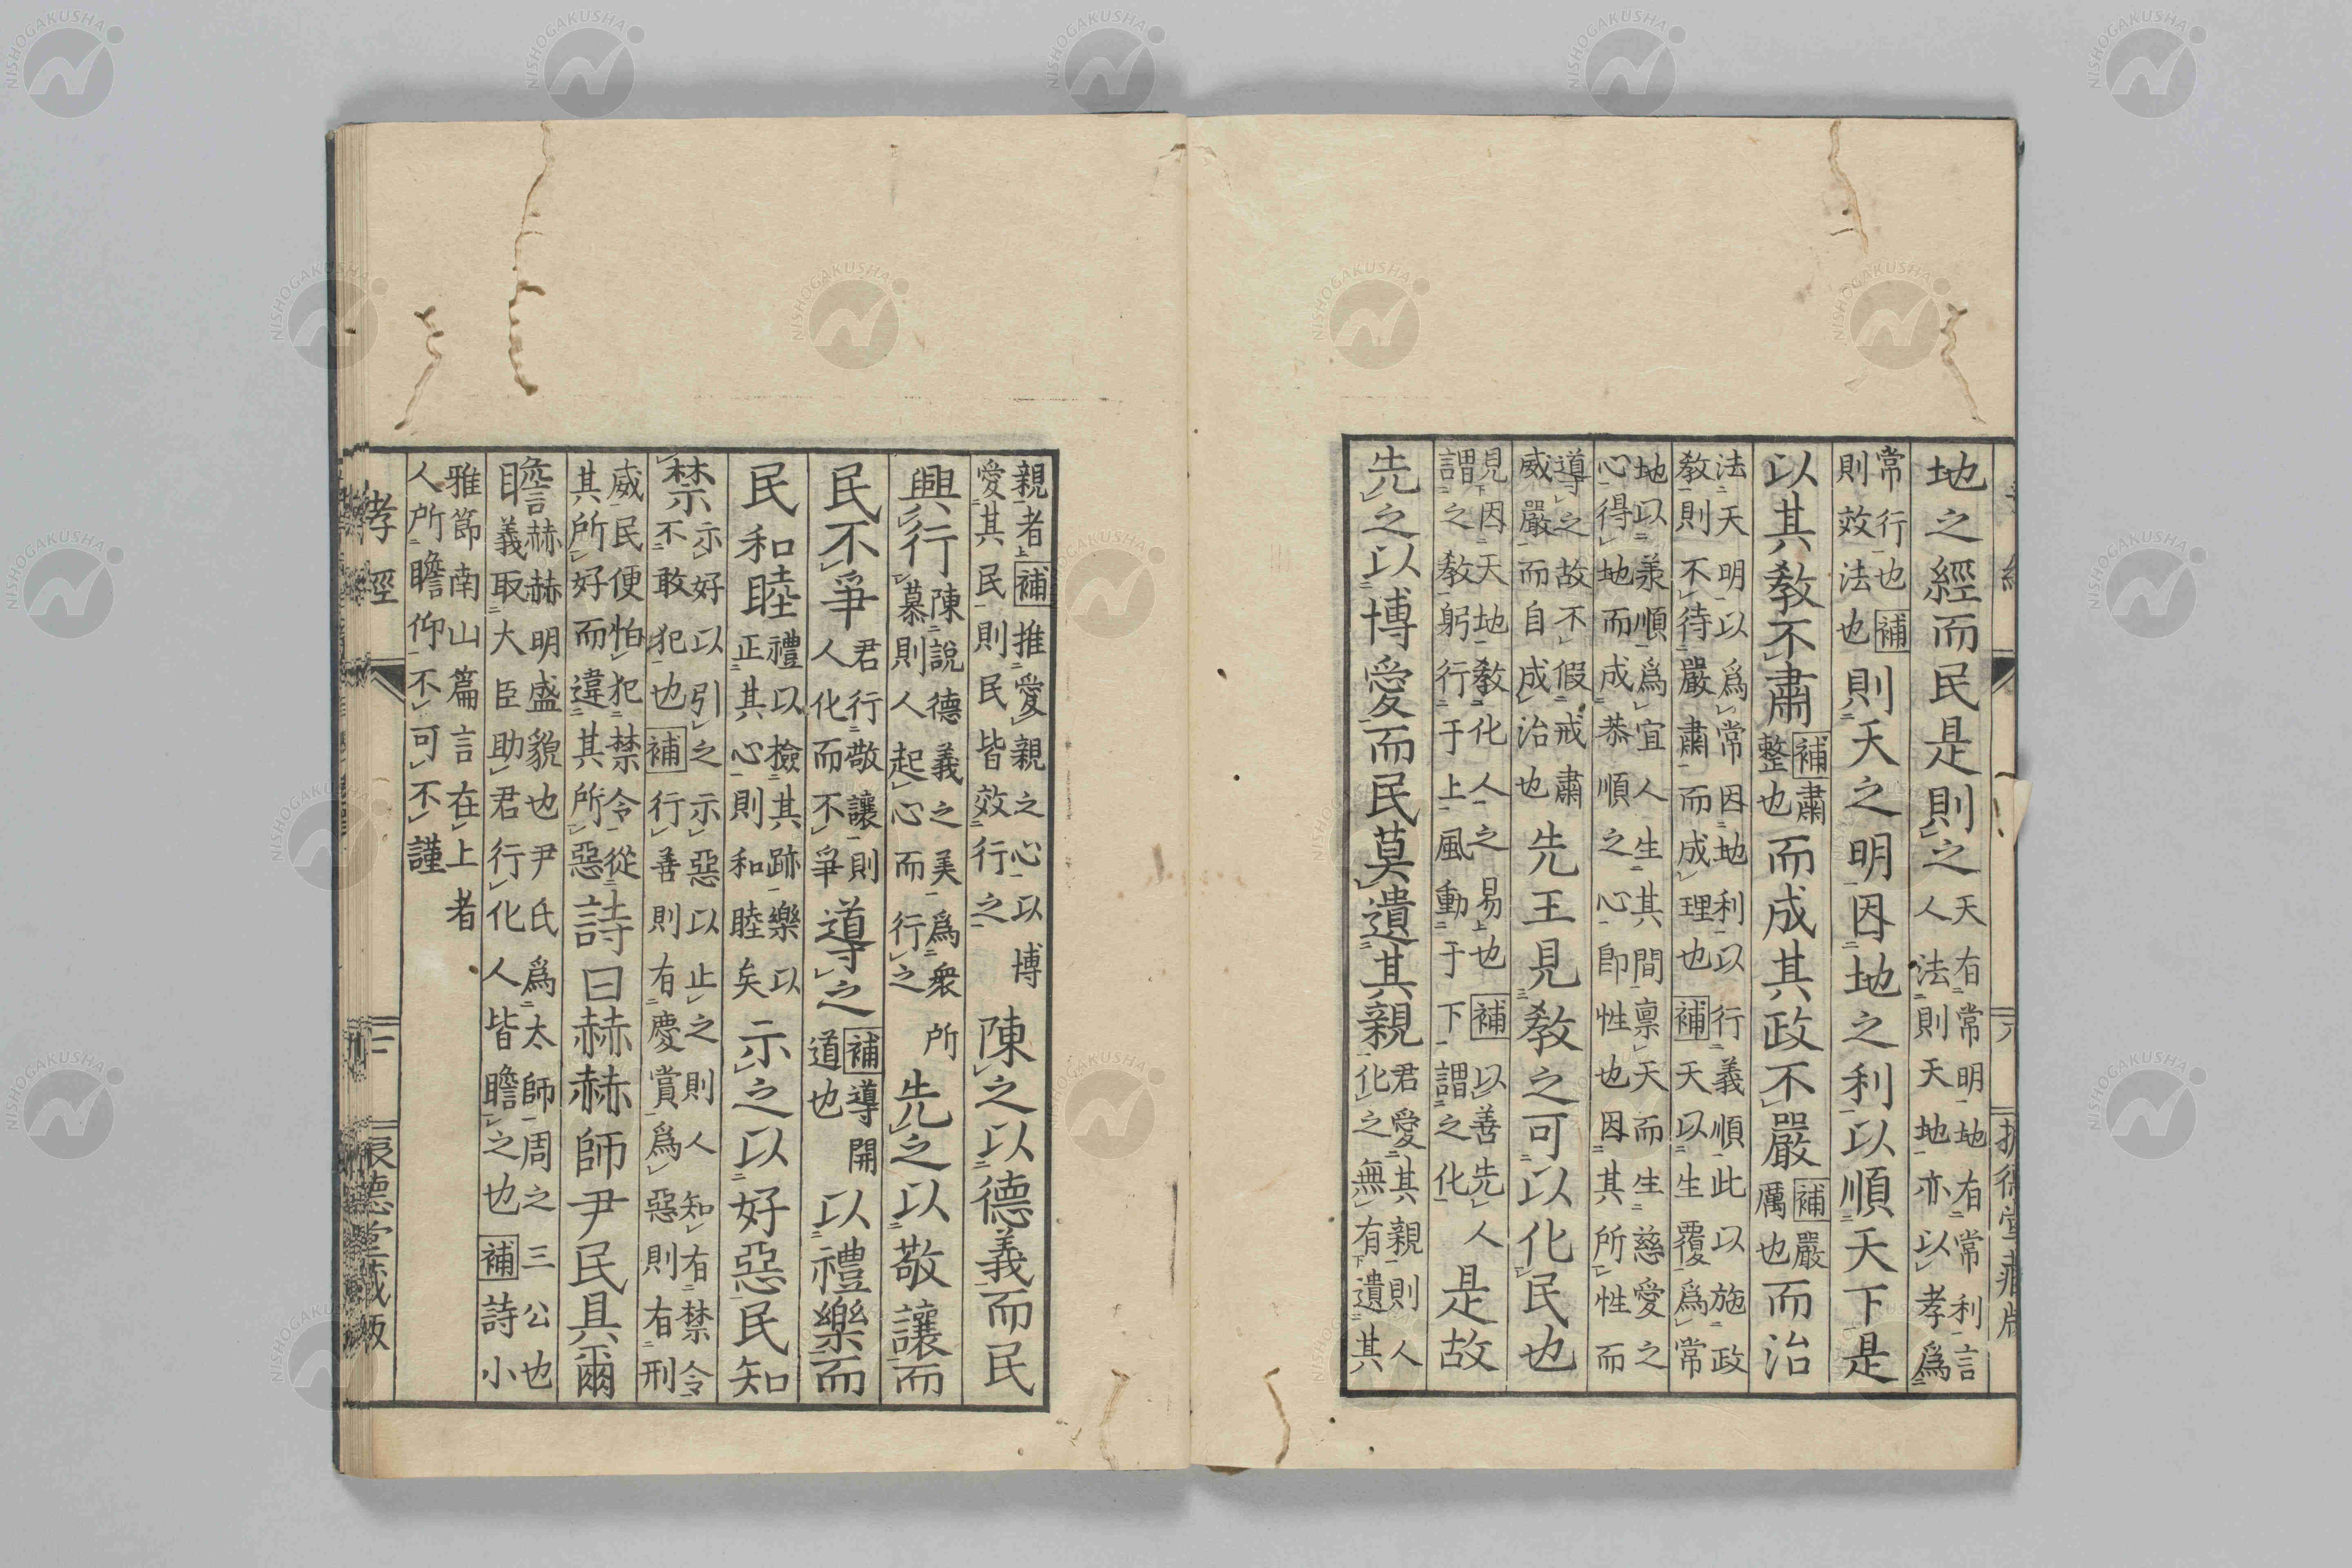 地之經而民是則之天有常明地有常利言
人法則天地亦以孝爲
常行也補
則效法也則天之明因地之利以順天下是
以其敎不肅補肅
整也而成其政不嚴補嚴
厲也而治
法天明以爲常因地利以行義順此以施政
敎則不待嚴肅而成理也補天以生覆爲常
地以義順爲宜人生其間禀天而生慈愛之
心得地而成恭順之心卽性也因其所性而
導之故不假戒肅
威嚴而自成治也先王見敎之可以化民也
見因天地敎化人之易也補以善先人
謂之敎躬行于上風動于下謂之化是故
先之以博愛而民莫遺其親君愛其親則人
化之無有遺其
親者補推愛親之心以博
愛其民則民皆效行之陳之以德義而民
興行陳說德義之美爲衆所
慕則人起心而行之先之以敬讓而
民不爭君行敬讓則
人化而不爭導之補導開
道也以禮樂而
民和睦禮以檢其跡樂以
正其心則和睦矣示之以好惡民知
禁示好以引之示惡以止之則人知有禁令
不敢犯也補行善則有慶賞爲惡則有刑
威民便怕犯禁令從
其所好而違其所惡詩曰赫赫師尹民具爾
瞻赫赫明盛貌也尹氏爲太師周之三公也
義取大臣助君行化人皆瞻之也補詩小
雅節南山篇言在上者
人所瞻仰不可不謹
孝經
德堂藏版
NISHOGAKUSHA